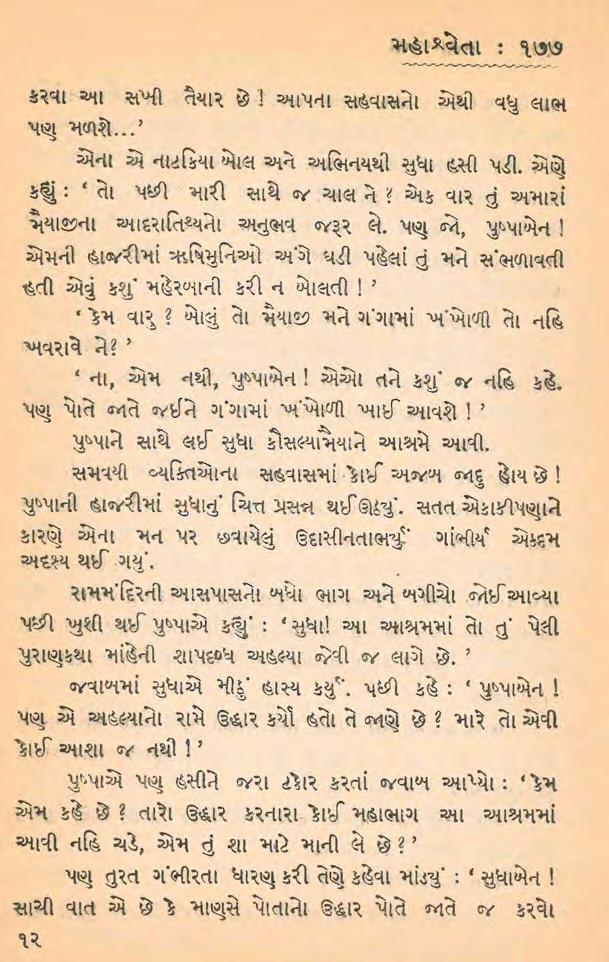 મહાશ્વેતા : ૧૭૭
કરવા આ સખી તૈયાર છે ! આપના સહવાસનો એથી વધુ લાભ
પણ મળશે...’
એના એ નાટકિયા બોલ અને અભિનયથી સુધા હસી પડી. એણે
કહ્યું : ‘ તો પછી મારી સાથે જ ચાલ ને ? એક વાર તું અમારાં
મૈયાજીના આદરાતિથ્યનો અનુભવ જરૂર લે. પણ જો, પુષ્પાબેન !
એમની હાજરીમાં ઋષિમુનિઓ અંગે ઘડી પહેલાં તું મને સંભળાવતી
હતી એવું કશું મહેરબાની કરી ન બોલતી ! ’
‘ કેમ વારુ ? બોલું તો મૈયાજી મને ગંગામાં ખંખોળી તો નહિ
ખવરાવે ને? ’
‘ ના, એમ નથી, પુષ્પાબેન ! એઓ તને કશું જ નહિ કહે.
પણ પોતે જાતે જઈને ગંગામાં ખંખોળી ખાઈ આવશે ! ’
પુષ્પાને સાથે લઈ સુધા કૌસલ્યામૈયાને આશ્રમે આવી.
સમવયી વ્યક્તિઓના સહવાસમાં કોઈ અજબ જાદુ હોય છે !
પુષ્પાની હાજરીમાં સુધાનું ચિત્ત પ્રસન્ન થઈ ઊઠ્યું. સતત એકાકીપણાને
કારણે એના મન પર છવાયેલું ઉદાસીનતાભર્યું ગાંભીર્ય એકદમ
અદૃશ્ય થઈ ગયું.
રામમંદિરની આસપાસનો બધો ભાગ અને બગીચો જોઈ આવ્યા
પછી ખુશી થઈ પુષ્પાએ કહ્યું : ‘ સુધા! આ આશ્રમમાં તો તું પેલી
પુરાણકથા માંહેની શાપદગ્ધ અહલ્યા જેવી જ લાગે છે. ’
જવાબમાં સુધાએ મીઠું હાસ્ય કર્યું. પછી કહે : ‘ પુષ્પાબેન !
પણ એ અહલ્યાનો રામે ઉદ્ધાર કર્યો હતો તે જાણે છે ? મારે તો એવી
કોઈ આશા જ નથી ! ’
પુષ્પાએ પણ હસીને જરા ટકોર કરતાં જવાબ આપ્યો : ‘ કેમ
એમ કહે છે ? તારો ઉદ્ધાર કરનારા કોઈ મહાભાગ આ આશ્રમમાં
આવી નહિ ચડે, એમ તું શા માટે માની લે છે ? ’
પણ તુરત ગંભીરતા ધારણ કરી તેણે કહેવા માંડ્યું : ‘ સુધાબેન !
સાચી વાત એ છે કે માણસે પોતાનો ઉદ્ધાર પોતે જાતે જ કરવો
૧૨